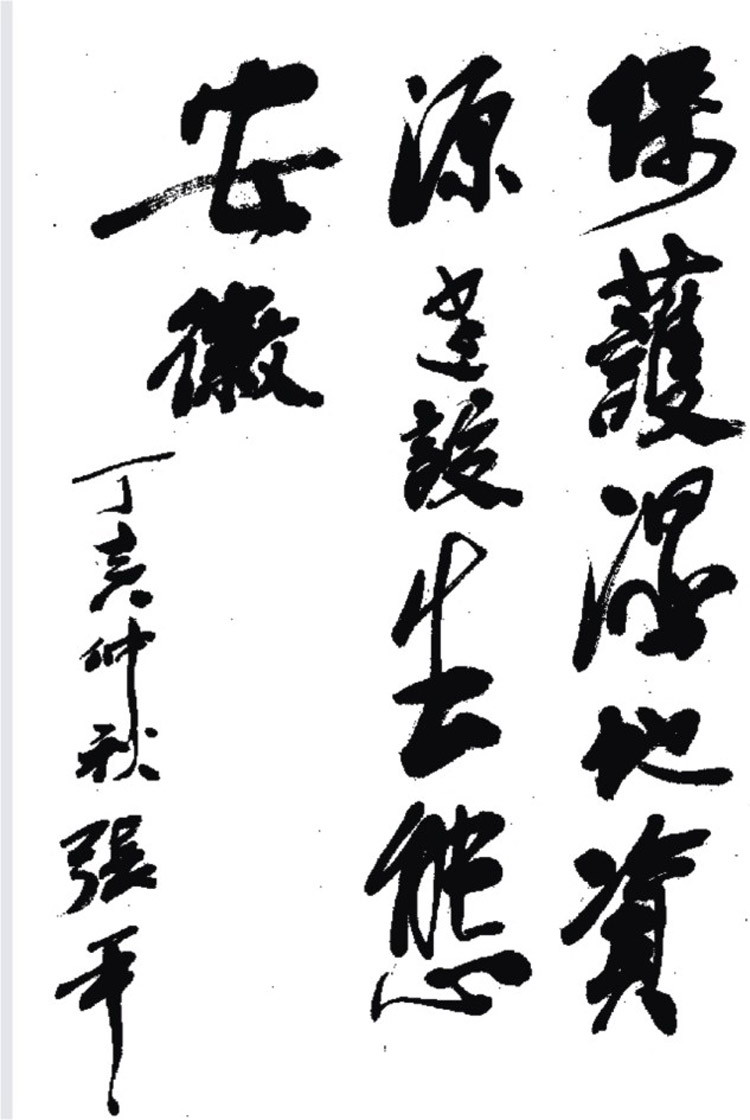 保護濕地資
源建設生態
安徽
丁亥仲秋 張平